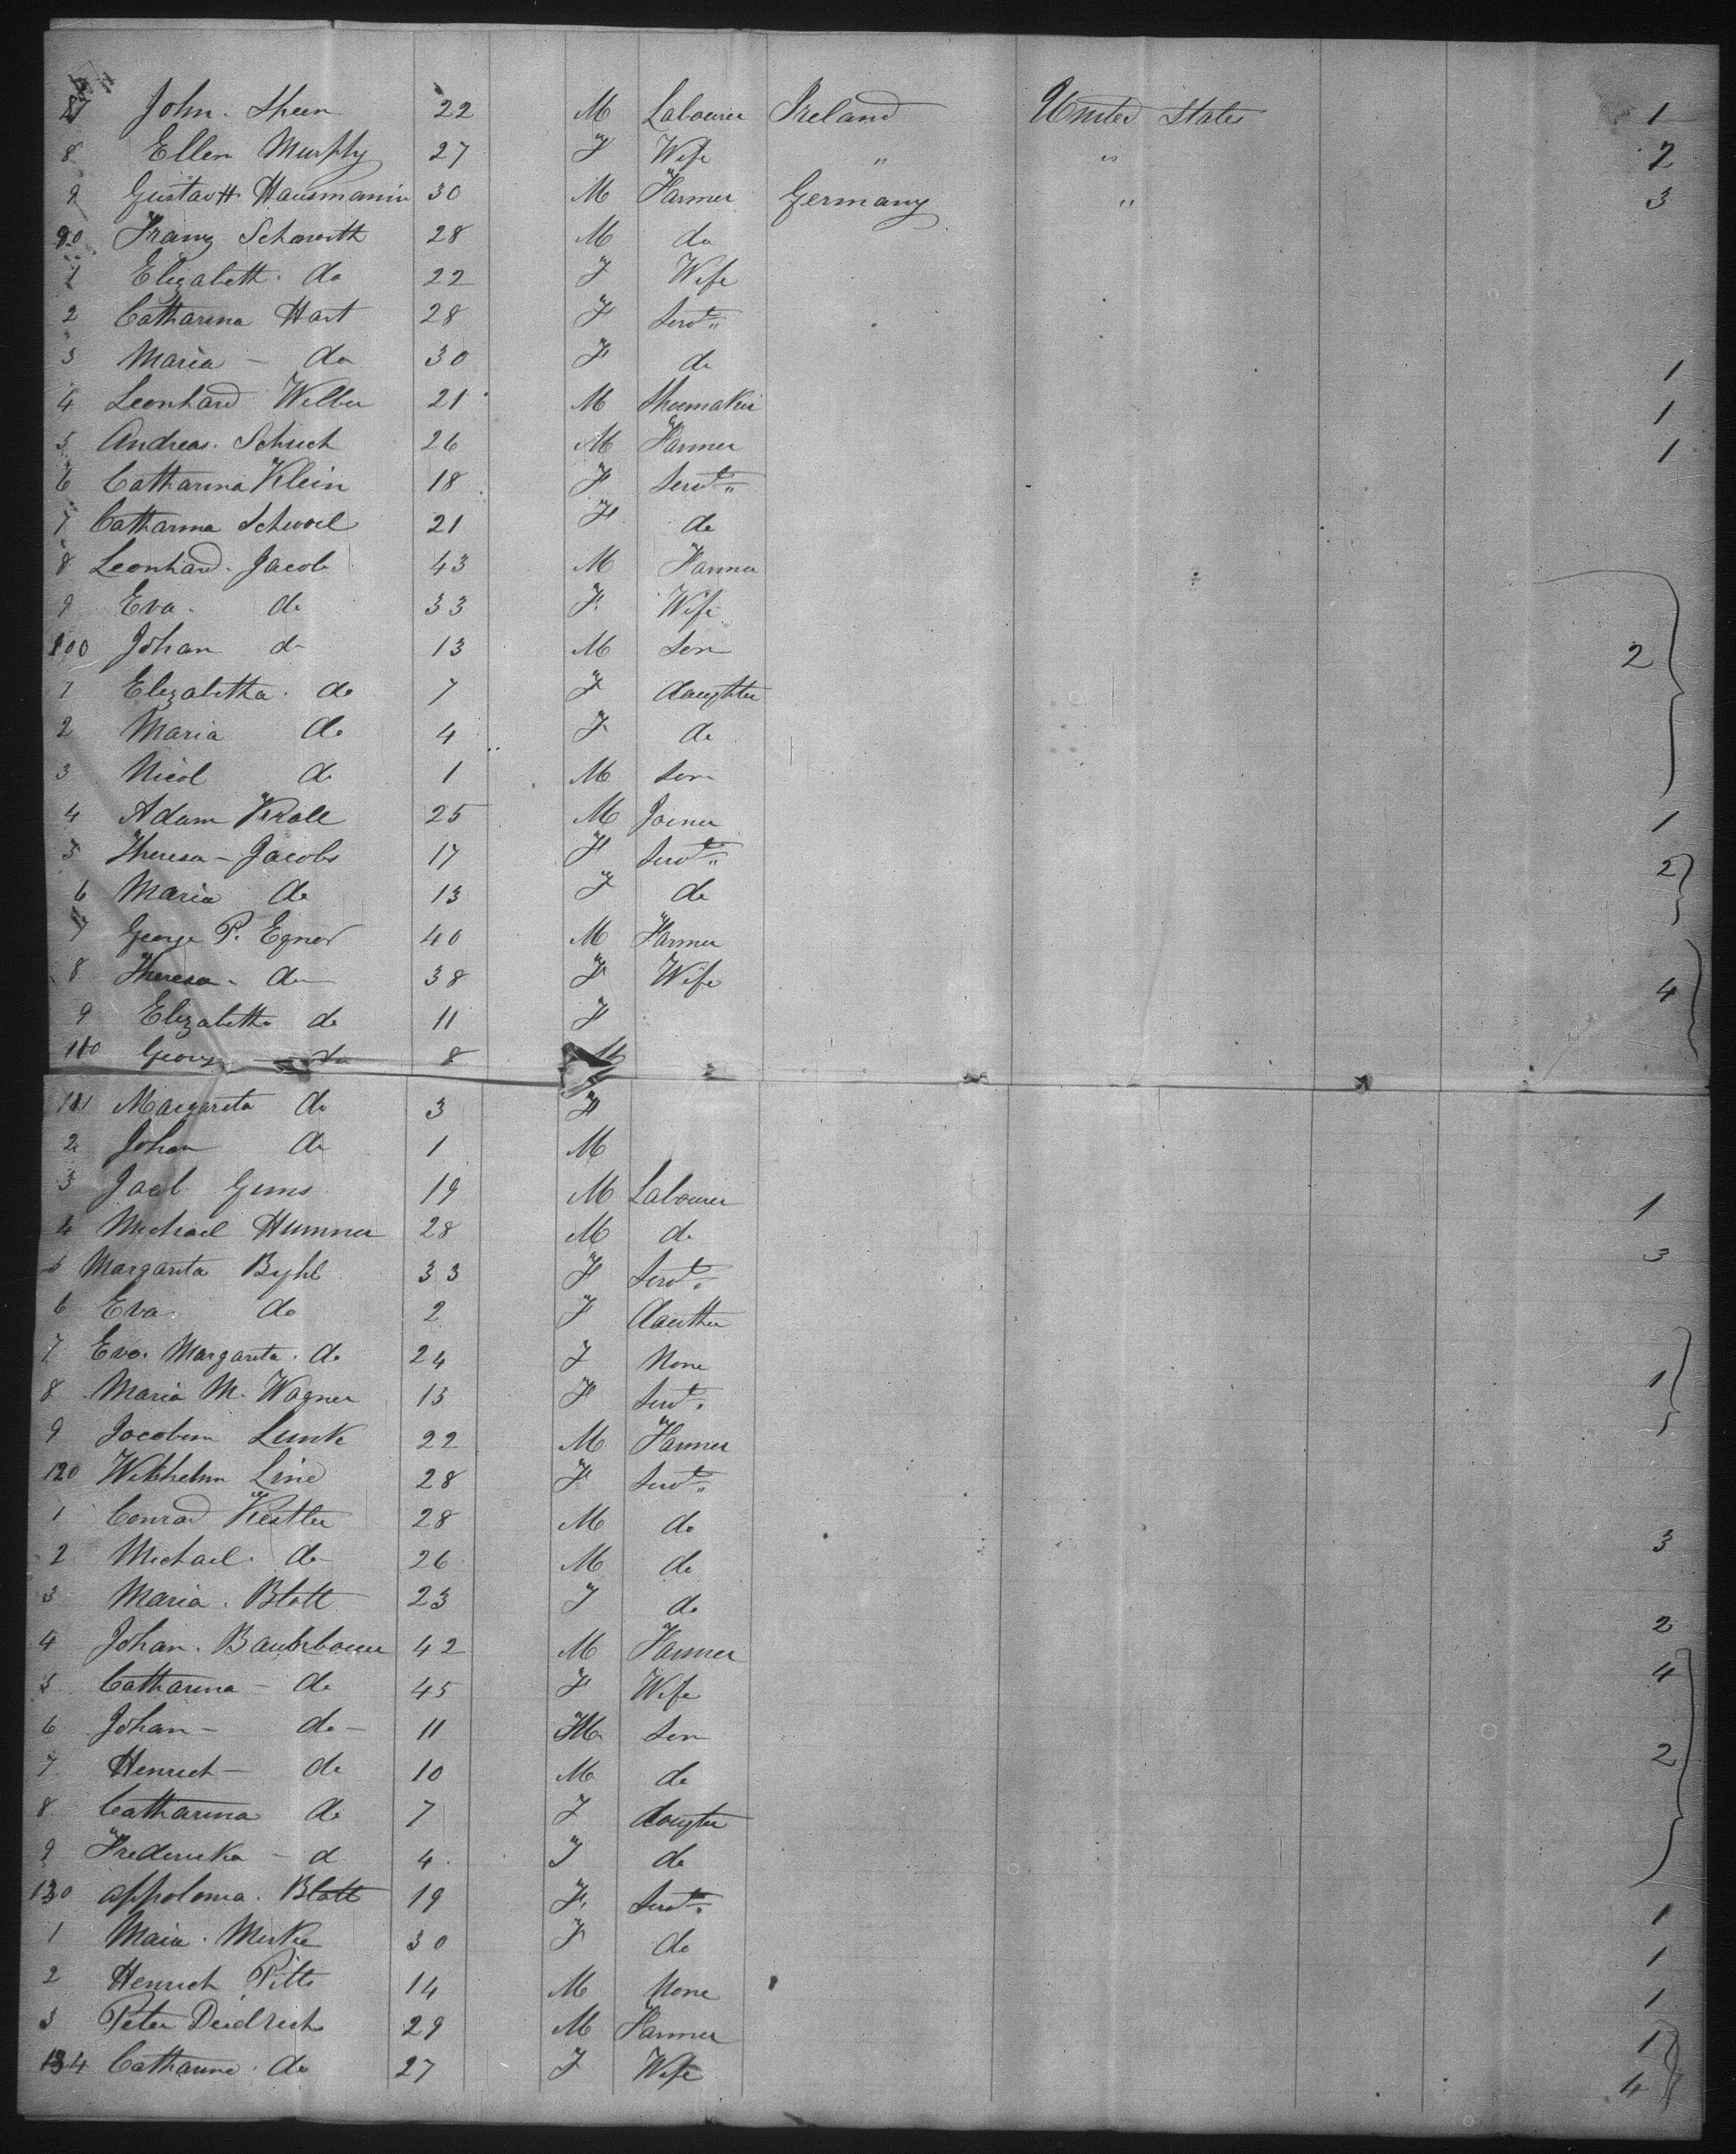 87 John. Sheen 22 M Labourer Ireland United States 1
8 Ellen Murphy 27 F Wife " " 2
9 Gustav H. Hausmann 30 M Farmer Germany " 3
90 Franz Schmith 28 M do
1 Elizabeth. do 22 F Wife
2 Catharina Hart 28 F Servt "
3 Maria - do 30 F do 1
4 Leonhard Welber 21 M Shoemaker 1
5 Andreas. Schuch 26 M Farmer 1
6 Catharina Klein 18 F Servt "
7 Catharina 21 F do
8 Leonhard. Jacob 43 M Farmer
9 Eva. do 33 F. Wife
100 Johan do 13 M Son 2
1 Elizabetha. do 7 F daughter
2 Maria do 4 F do
3 Nicol do 1 M Son
4 Adam Kroll 25 M Joiner 1
5 Theresa - Jacobs 17 F Servt " 2
6 Maria do 13 F do
7 George P. Egner 40 M Farmer
8 Theresa - do 38 F Wife 4
9 Elizabetha do 11 F
110 George - do 8 M
111 Margareta do 3 F
2 Johan do 1 M
3 Jacob Gems 19 M Labourer 1
4 Michael Hummer 28 M do 3
5 Margareta Byhl 33 F Servt "
6 Eva do 2 F dauther
7 Eva. Margareta. do 24 F None
8 Maria M. Wagner 13 F Servt. 1
9 Jacobem Lunk 22 M Farmer
120 Wilhelm Lind 28 F Servt "
1 Conrad Kestler 28 M do
2 Michael. do 26 M do 3
3 Maria. Blatt 23 F do
4 Johan. 42 M Farmer 2
5 Catharina - do 45 F Wife 4
6 Johan - do - 11 M. Son
7 Henrich - do 10 M do 2
8 Catharina do 7 F dougter
9 Frederika - d 4 F do
130 Appolonia. Blatt 19 F. Servt. 1
1 Maria. Merke 30 F do 1
2 Henrich Pitts 14 M None 1
3 Peter Deidrich 29 M Farmer 1
134 Catharine. do 27 F Wife 4